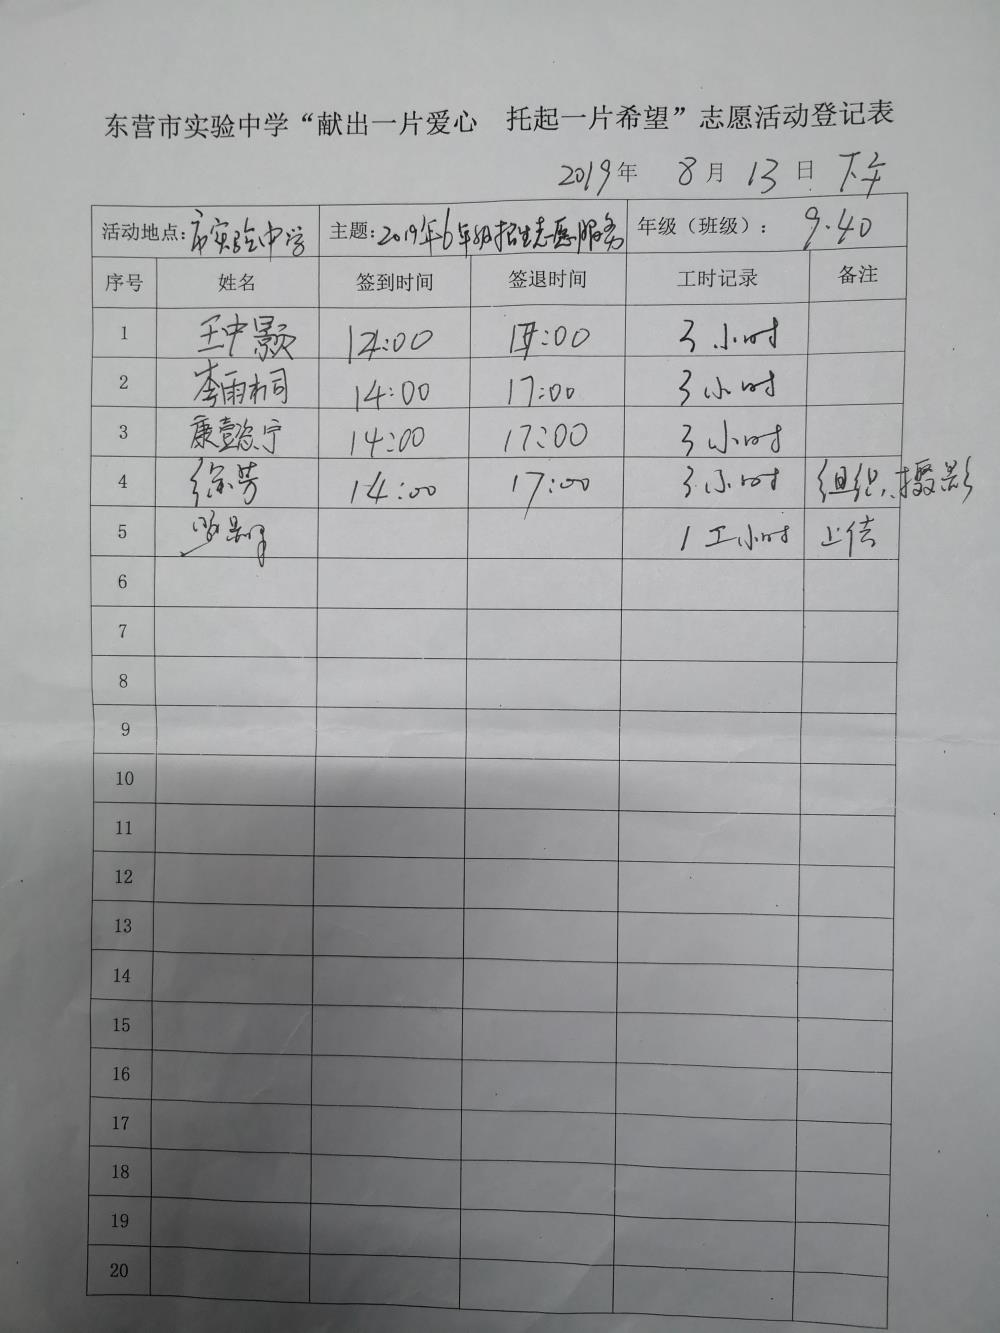 东营市实验中学“献出一片爱心 托起一片希望”志愿活动登记表
2019年 8月13日 下午
活动地点:市实验中学 主题:2019年6年级招生志愿服务 年级（班级）: 9.40
序号 姓名 签到时间 签退时间 工时记录 备注
1 王中颢 14:00 17:00 3小时
2 李雨桐 14:00 17:00 3小时
3 康壹恣宁 14:00 17:00 3小时
4 徐芳 14:00 17:00 3小时 组织、摄影
5 1工小时 上传
6
7
8
9
10
11
12
13
14
15
16
17
18
19
20